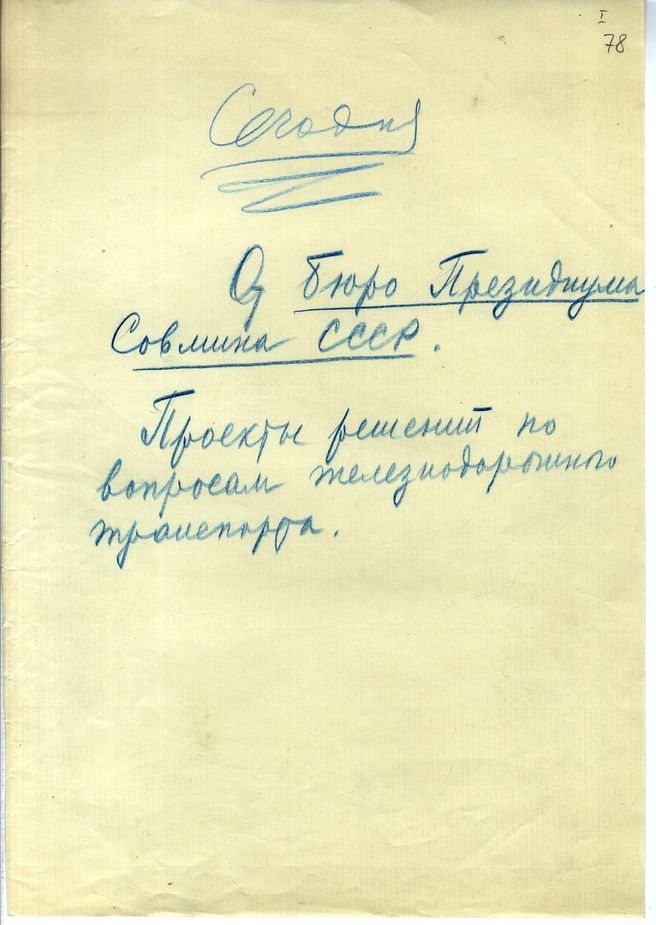 I
78
Сегодня
От бюро Президиума
Совмина СССР.
Проекты решений по
вопросам железнодорожного
транспорта.